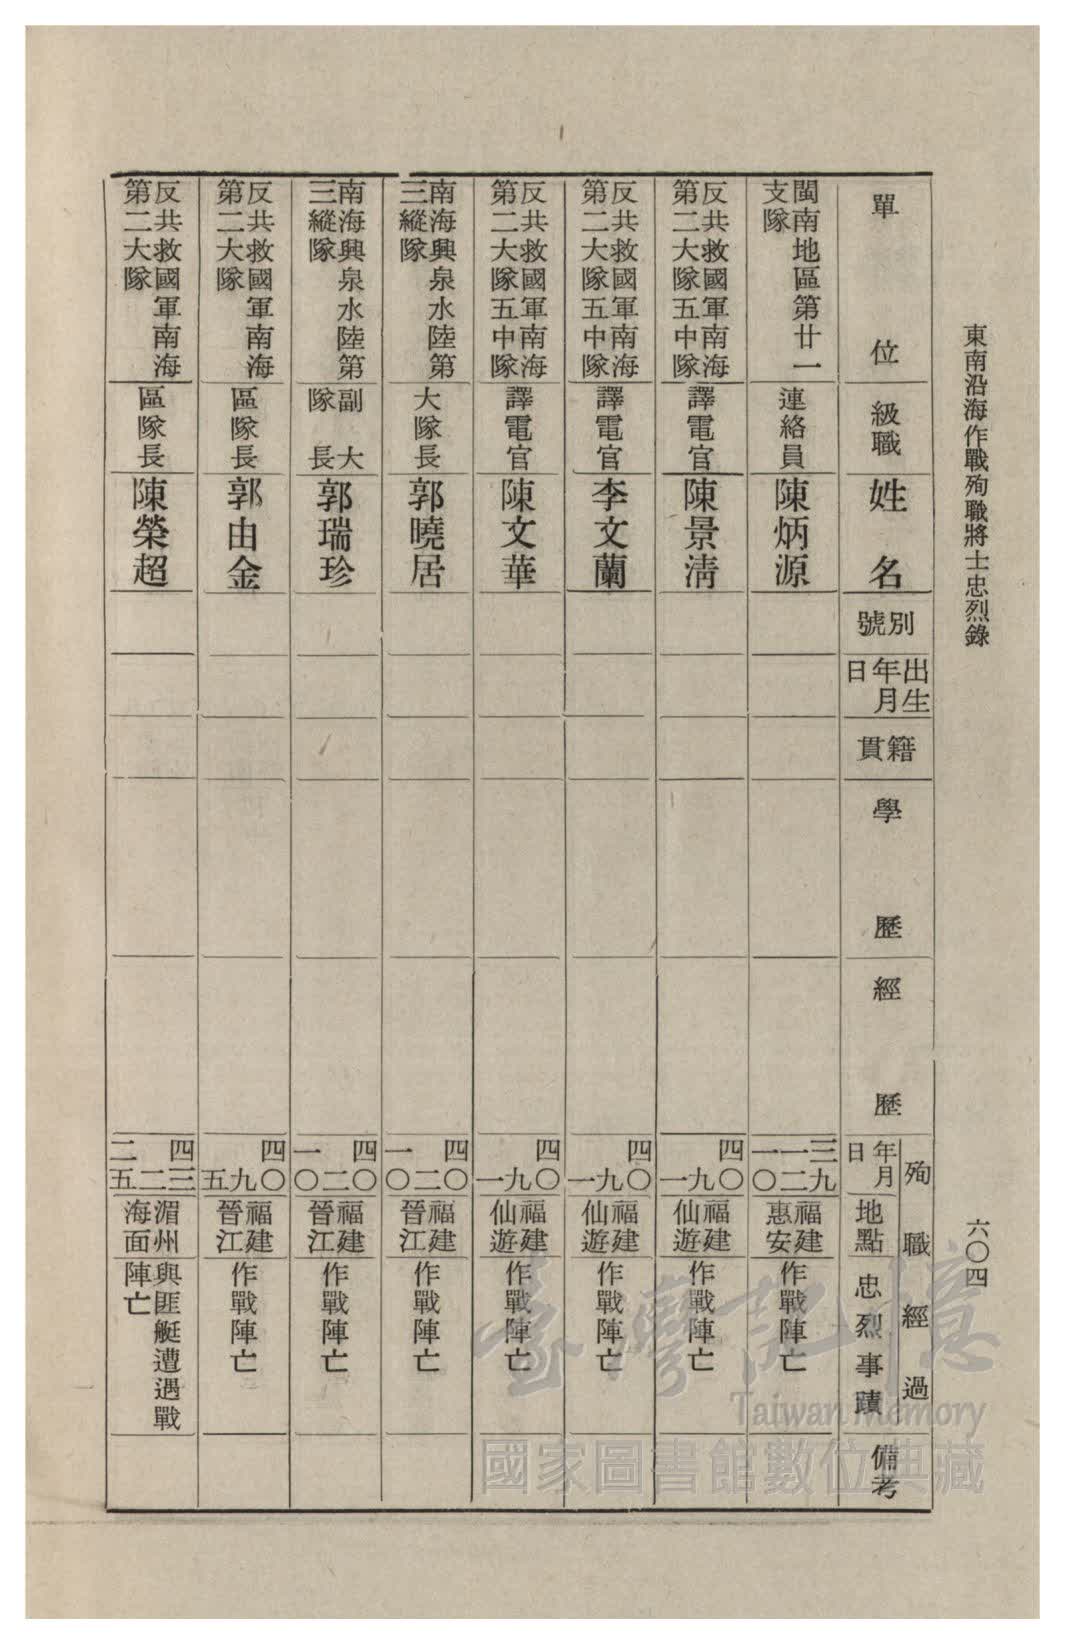 東南沿海作戰殉職將士忠烈錄
六〇四
單位
級職
姓名
別號
出生
年月
日
籍貫
學歷
經歷
殉職經過
年月
日
地點
忠烈事蹟
備考
閩南地區第廿一
支隊
連絡員
陳炳源
三九
一二
一〇
福建
惠安
作戰陣亡
反共救國軍南海
第二大隊五中隊
譯電官
陳景清
四〇
九
一
福建
仙遊
作戰陣亡
反共救國軍南海
第二大隊五中隊
譯電官
李文蘭
四〇
九
一
福建
仙遊
作戰陣亡
反共救國軍南海
第二大隊五中隊
譯電官
陳文華
四〇
九
一
福建
仙遊
作戰陣亡
南海興泉水陸第
三縱隊
大隊長
郭曉居
四〇
二
一〇
福建
晉江
作戰陣亡
南海興泉水陸第
三縱隊
副大
隊長
郭瑞珍
四〇
二
一〇
福建
晉江
作戰陣亡
反共救國軍南海
第二大隊
區隊長
郭由金
四〇
九
五
福建
晉江
作戰陣亡
反共救國軍南海
第二大隊
區隊長
陳榮超
四三
二
二五
湄州
海面
與匪艇遭遇戰
陣亡
臺灣記憶
Taiwan Memory
國家圖書館數位典藏